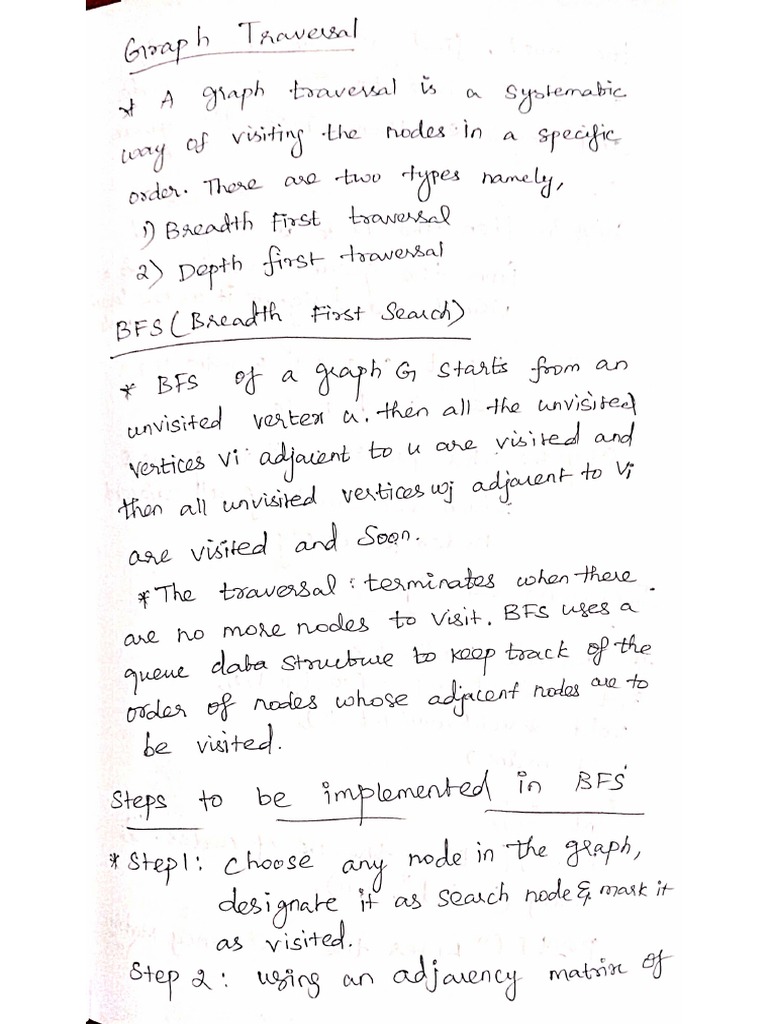 Graph Traversal
* A graph traversal is a systematic
way of visiting the nodes in a specific
order. There are two types namely,
1) Breadth First traversal
2) Depth first traversal
BFS (Breadth First Search)
* BFS of a graph G starts from an
unvisited vertex u. then all the unvisited
vertices vi adjacent to u are visited and
then all unvisited vertices wj adjacent to vi
are visited and soon.
* The traversal terminates when there
are no more nodes to visit. BFS uses a
queue data structure to keep track of the
order of nodes whose adjacent nodes are to
be visited.
Steps to be implemented in BFS
* Step1: choose any node in the graph,
designate it as search node & mark it
as visited.
Step 2: using an adjacency matrix of